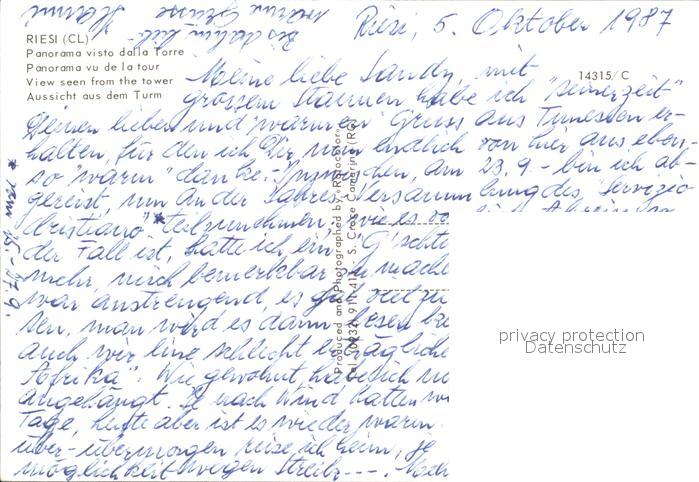 Riesi, 5. Oktober 1987
RIESI (CL)
Panorama visto dalla Torre
Panorama vu de la tour
View seen from the tower
Aussicht aus dem Turm
14315/C
Meine liebe Sandy, mit
grossem Staunen habe ich "seinerzeit"
Deinen lieben und "warmen" Gruss aus Tunesien er-
halten, für den ich Dir nun endlich von hier aus eben-
so "warm" danke. Inzwischen, am 23.9. bin ich ab-
gereist, um an der Jahres-Versammlung des "Servizio
Cristiano"* teilzunehmen, wie es
der Fall ist, hatte ich ein
mehr, mich bemerkbar zu mache
war anstrengend, es gab viel zu
sen, man wird es dann lesen
auch wir eine schlecht erträgliche
Afrika". Wie gewohnt, habe ich
angehängt. Je nach Wind hatten
Tage, heute aber ist es wieder warm.
über-übermorgen reise ich heim, je
möglichkeit wegen Streik---. Noch
* vom
Bis dahin
Grüsse
Produced and Photographed by «Rotocolor»
S. Croce Camerina (RG)
privacy protection
Datenschutz